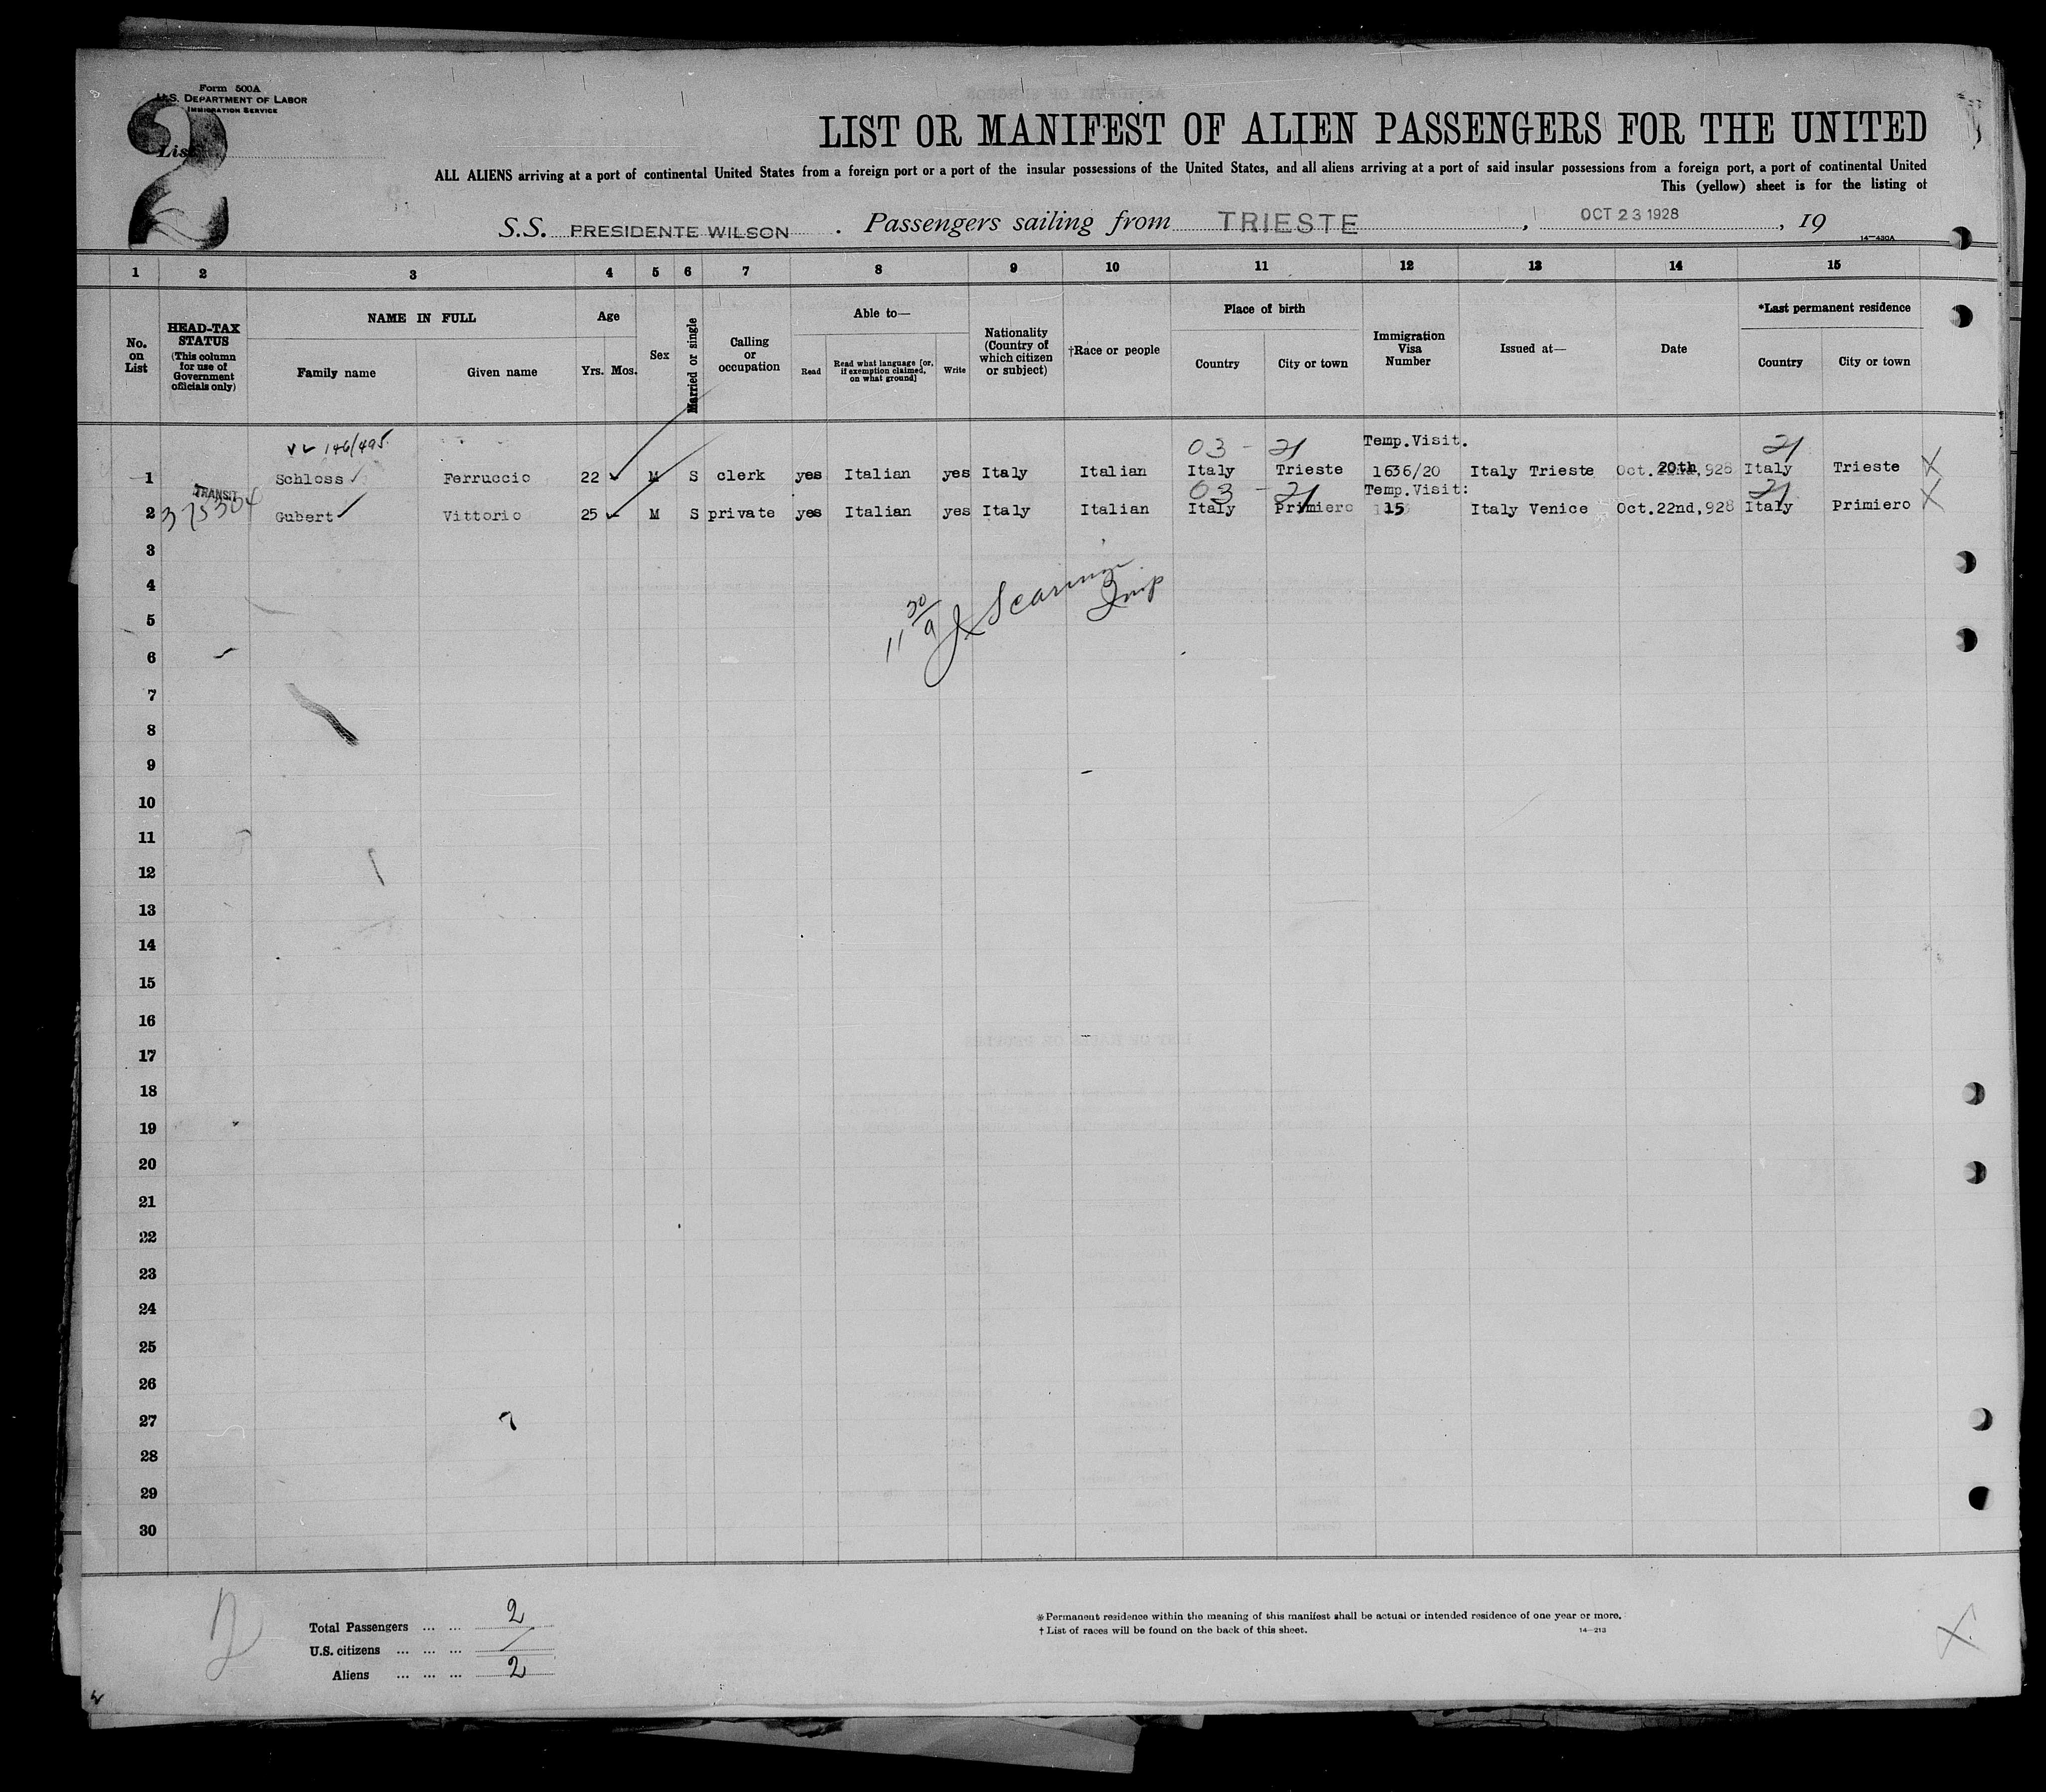 Form 500A
U.S. DEPARTMENT OF LABOR
IMMIGRATION SERVICE
2
List
LIST OR MANIFEST OF ALIEN PASSENGERS FOR THE UNITED
ALL ALIENS arriving at a port of continental United States from a foreign port or a port of the insular possessions of the United States, and all aliens arriving at a port of said insular possessions from a foreign port, a port of continental United
This (yellow) sheet is for the listing of
S.S. PRESIDENTE WILSON . Passengers sailing from TRIESTE , OCT 23 1928 , 19
14—430A
1 2 3 4 5 6 7 8 9 10 11 12 13 14 15
No. on List
HEAD-TAX STATUS (This column for use of Government officials only)
NAME IN FULL
Family name Given name
Age
Yrs. Mos.
Sex
Married or single
Calling or occupation
Able to—
Read
Read what language [or, if exemption claimed, on what ground]
Write
Nationality (Country of which citizen or subject)
†Race or people
Place of birth
Country City or town
Immigration Visa Number
Issued at—
Date
*Last permanent residence
Country City or town
146/495 03 - 21 Temp.Visit. 21
1 Schloss Ferruccio 22 M S clerk yes Italian yes Italy Italian Italy Trieste 1636/20 Italy Trieste Oct. 20th, 928 Italy Trieste X
TRANSIT 03 - 21 Temp.Visit: 21
2 375304 Gubert Vittorio 25 M S private yes Italian yes Italy Italian Italy Primiero 15 Italy Venice Oct.22nd,928 Italy Primiero X
3
4
5
11 30/a
Insp
6
7
8
9
10
11
12
13
14
15
16
17
18
19
20
21
22
23
24
25
26
27
28
29
30
2
Total Passengers ... ... 2
U.S. citizens ... ... ... /
Aliens ... ... ... 2
*Permanent residence within the meaning of this manifest shall be actual or intended residence of one year or more.
† List of races will be found on the back of this sheet.
14—213
X